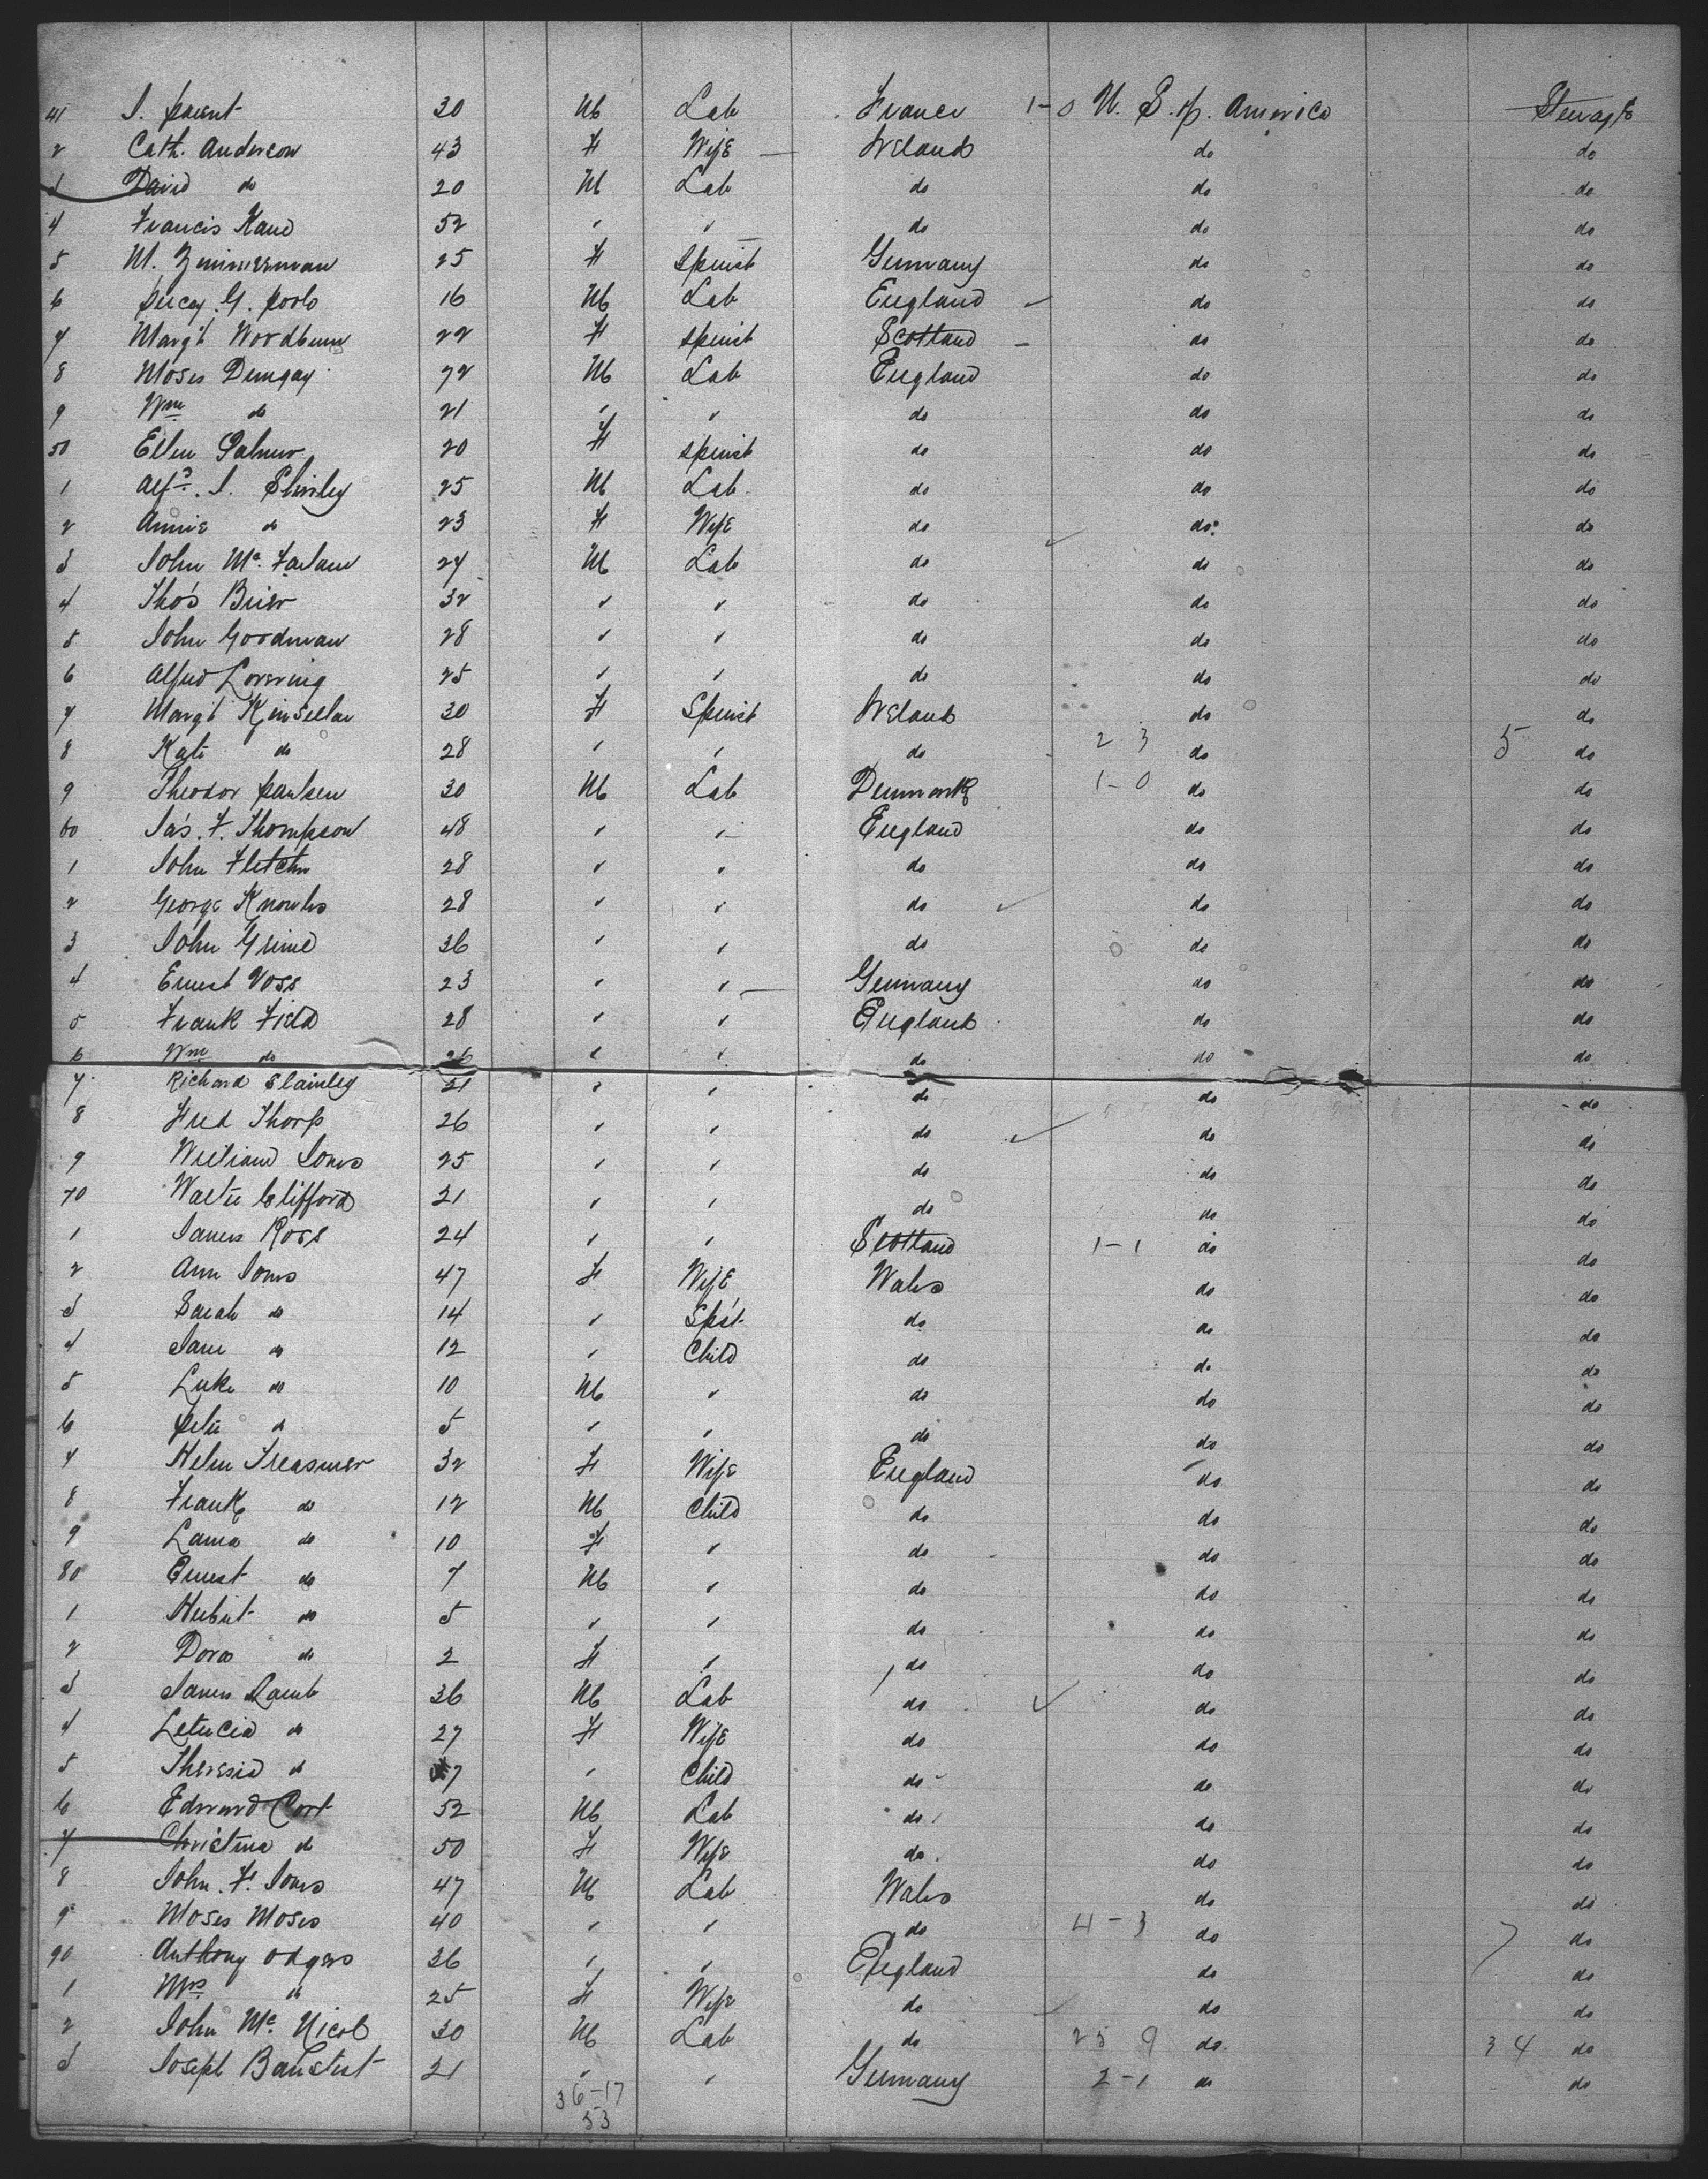 41 J. Parent 30 M Lab France 1-0 U. S. of. America Steerage
2 Cath. Anderson 43 F Wife — Ireland do do
3 David do 20 M Lab do do do
4 Francis Kane 52 " " do do do
5 M. Zimmerman 25 F Spinst Germany do do
6 Percy. G. Poole 16 M Lab England ✓ do do
7 Margt Woodburn 22 F Spinst Scotland – do do
8 Moses Dungay 72 M Lab England do do
9 Wm do 21 " " do do do
50 Ellen Palmer 20 F Spinst do do do
1 Alfd. J. Shirley 25 M Lab. do do do
2 Annie do 23 F Wife do ✓ do do
3 John Mc. Farlane 24 M Lab do do do
4 Thos Brier 32 " " do do do
5 John Goodman 28 " " do do do
6 Alfred Lovering 25 " " do do do
7 Margt Kinsellar 30 F Spinst Ireland do do
8 Kate do 28 " " do 2 3 do 5 do
9 Theodor Paulsen 30 M Lab Denmark 1-0 do do
60 Jas. F. Thompson 48 " " England do do
1 John Fletcher 28 " " do do do
2 George Knowles 28 " " do ✓ do do
3 John Grime 36 " " do do do
4 Ernest Voss 23 " " — Germany do do
5 Frank Field 28 " " England do do
6 Wm do 26 " " do do do
7 Richard Slainley 21 " " do do do
8 Fred Thorp 26 " " do ✓ do do
9 William Jones 25 " " do do do
70 Walter Clifford 21 " " do do do
1 James Ross 24 " " Scotland 1-1 do do
2 Ann Jones 47 F Wife Wales do do
3 Sarah do 14 " Spst. do do do
4 Jane do 12 " Child do do do
5 Luke do 10 M " do do do
6 Peter do 5 " " do do do
7 Helen Treasurer 32 F Wife England do do
8 Frank do 12 M Child do do do
9 Laura do 10 F " do do do
80 Ernest do 7 M " do do do
1 Hubert do 5 " " do do do
2 Dora do 2 F " do do do
3 James Lamb 36 M Lab do ✓ do do
4 Leticia do 27 F Wife do do do
5 Theresia do 7 " Child do do do
6 Edward Cort 52 M Lab do do do
7 Christina do 50 F Wife do do do
8 John. F. Jones 47 M Lab Wales do do
9 Moses Moses 40 " " do 4-3 do 7 do
90 Anthony Odgers 36 " " England do do
1 Mrs do 25 F Wife do do do
2 John Mc. Nicol 30 M Lab do 25 9 do 34 do
3 Joseph Banstert 21 " " Germany 2-1 do do
36-17
53